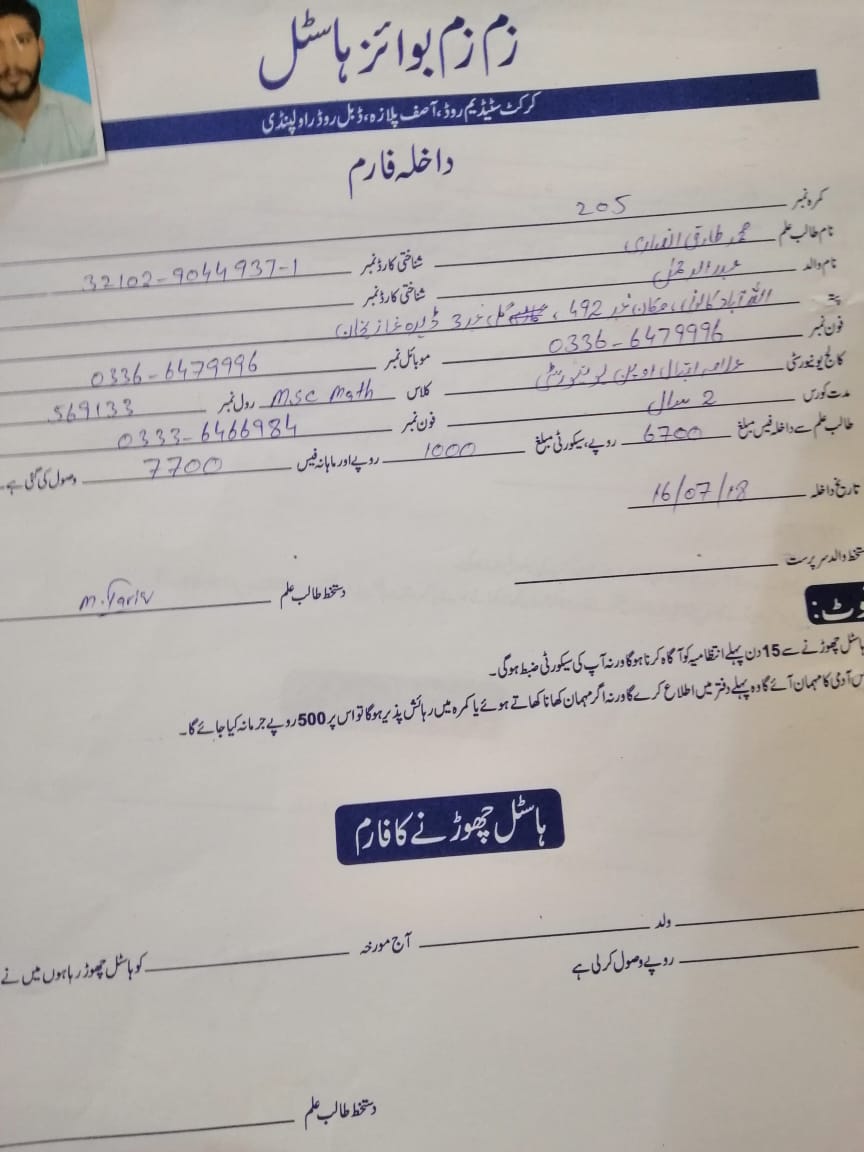 زم زم بوائز ہاسٹل
کرکٹ سٹیڈیم روڈ، آصف پلازہ، ڈبل روڈ راولپنڈی
داخلہ فارم
کمرہ نمبر 205
نام طالب علم محمد طارق انصاری
نام والد عبدالرحمٰن شناختی کارڈ نمبر 32102-9044937-1
شناختی کارڈ نمبر
پتہ اللہ آباد کالونی، مکان نمبر 492، گلی نمبر 3 ڈیرہ غازیخان
فون نمبر 0336-6479996 موبائل نمبر 0336-6479996
کالج یونیورسٹی علامہ اقبال اوپن یونیورسٹی کلاس M.Sc Math رول نمبر 569133
مدت کورس 2 سال فون نمبر 0333-6466984
طالب علم سے داخلہ فیس مبلغ 6700 روپے، سیکورٹی مبلغ 1000 روپے اور ماہانہ فیس 7700 وصول کی گئی ہے۔
تاریخ داخلہ 16/07/18
دستخط والد سرپرست
دستخط طالب علم M.Tariq
نوٹ:
ہاسٹل چھوڑنے سے 15 دن پہلے انتظامیہ کو آگاہ کرنا ہوگا ورنہ آپ کی سیکورٹی ضبط ہوگی۔
جس آدمی کا مہمان آئے گا وہ پہلے دفتر میں اطلاع کرے گا ورنہ اگر مہمان کھانا کھاتے ہوئے یا کمرہ میں رہائش پذیر ہوگا تو اس پر 500 روپے جرمانہ کیا جائے گا۔
ہاسٹل چھوڑنے کا فارم
ولد آج مورخہ کو ہاسٹل چھوڑ رہا ہوں میں نے
روپے وصول کرلی ہے
دستخط طالب علم